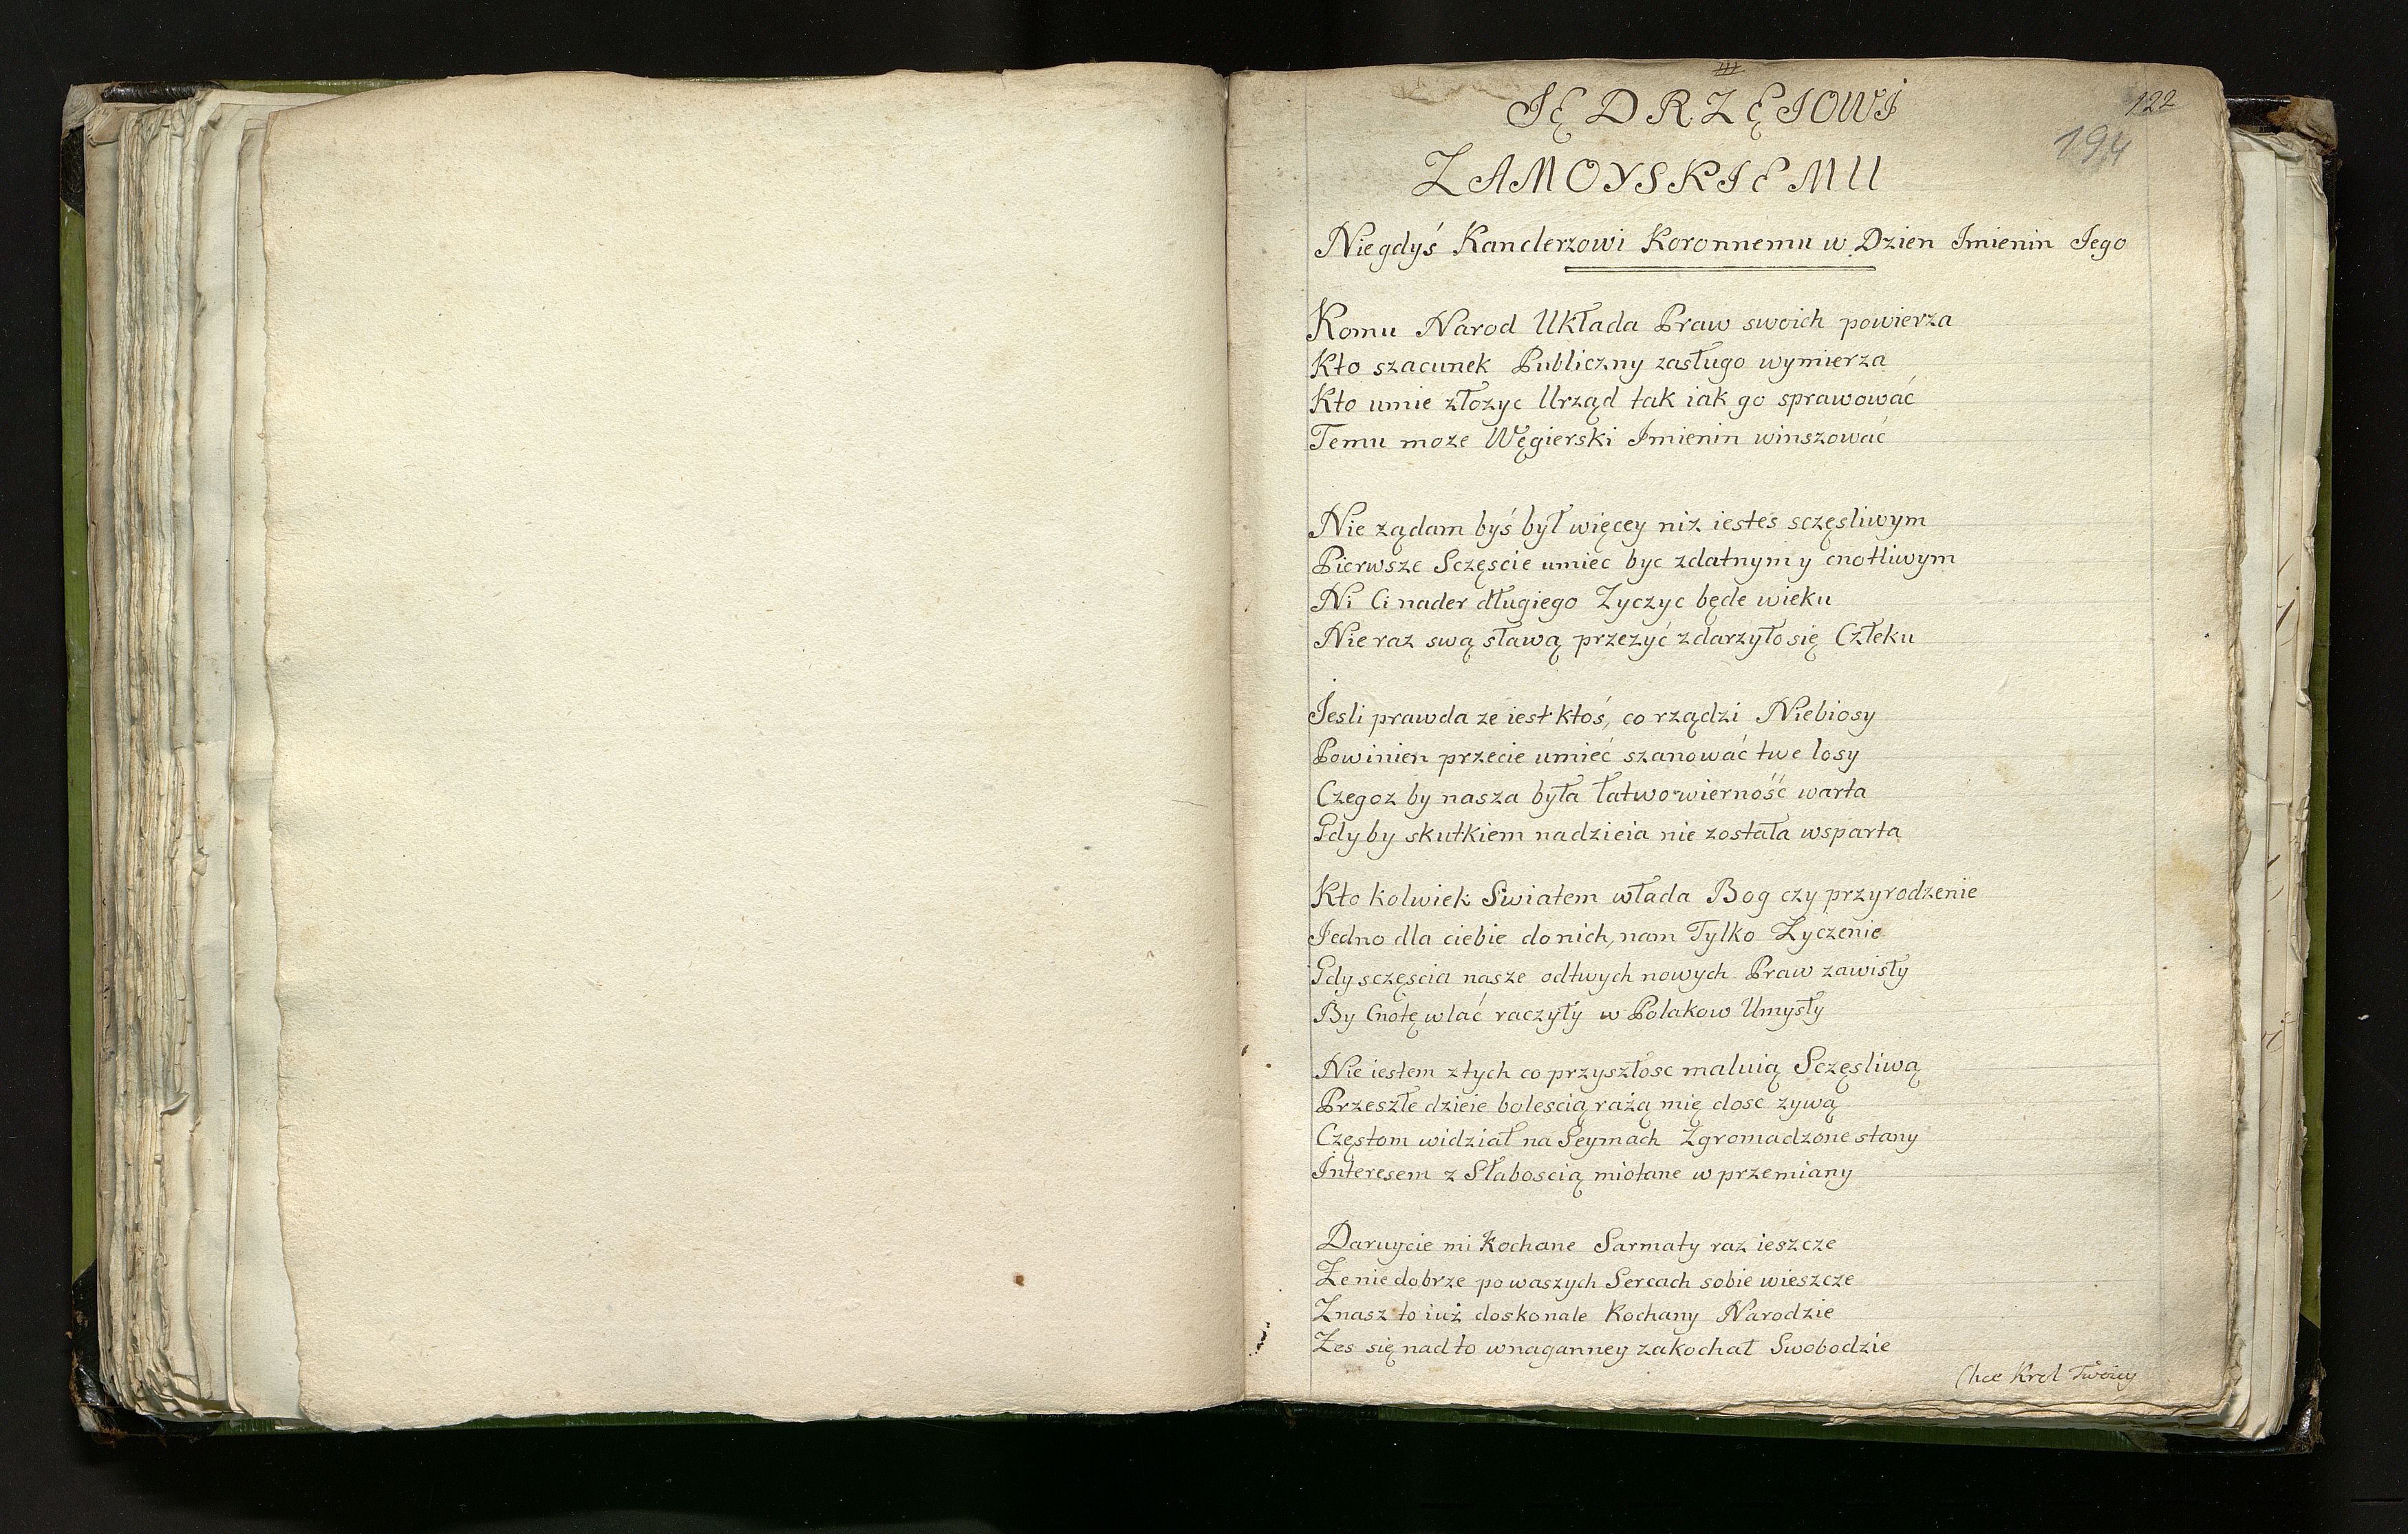 122
194
IĘDRZĘIOWI
ZAMOYSKIEMU
Niegdyś Kanclerzowi Koronnemu w Dzien Imienin Iego
Komu Narod Układa Praw swoich powierza
Kto szacunek Publiczny zasługo wymierza
Kto umie złozyc Urząd tak iak go sprawować
Temu moze Węgierski Imienin winszować
Nie ządam byś był więcey niz iestes sczęsliwym
Pierwsze Sczęscie umiec byc zdatnym y cnotliwym
Ni Ci nader długiego Zyczyc będe wieku
Nie raz swą sławą przezyć zdarzyło się Człeku
Iesli prawda ze iest ktoś, co rządzi Niebiosy
Powinien przecie umieć szanować twe losy
Czegoz by nasza była łatwowierność warta
Gdy by skutkiem nadzieia nie została wsparta
Kto kolwiek Swiatem włada Bog czy przyrodzenie
Iedno dla ciebie do nich, nam Tylko Zyczenie
Gdy sczęscia nasze od twych nowych Praw zawisły
By Cnotę wlać raczyły w Polakow Umysły
Nie iestem z tych co przyszłosc maluią Sczęsliwą
Przeszłe dzieie bolescią rażą mię dosc zywą
Częstom widział na Seymach Zgromadzone stany
Interesem z Słaboscią miotane w przemiany
Daruycie mi Kochane Sarmaty raz ieszcze
Że nie dobrze po waszych Sercach sobie wieszcze
Znasz to iuż doskonale Kochany Narodzie
Zes się nad to w naganney zakochał Swobodzie
Chce Krol Twoiey